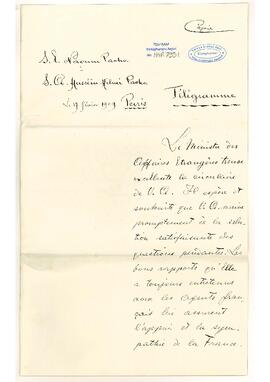 Copie
S. E. Naoum Pacha
S. A. Hussein Hilmi Pacha
Le 19 février 1909 Paris
Télégramme
Le Ministre des
Affaires Etrangères trouve
excellente la circulaire
de V. A. Il espère et
souhaite que V. A. arrive
promptement à la solu-
tion satisfaisante des
questions pendantes. Les
bons rapports qu'Elle
a toujours entretenus
avec les agents fran-
çais lui assurent
l'appui et la sym-
pathie de la France.